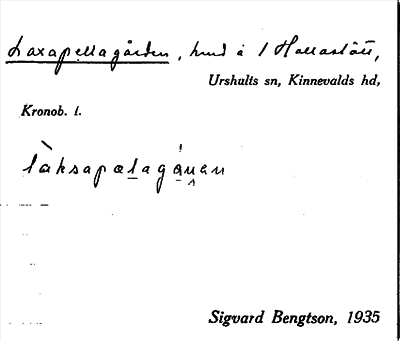 Laxapellagården, hmd å 1 Hallaslätt,
Urshults sn, Kinnevalds hd,
Kronob. l.
làksapælagánen
Sigvard Bengtson, 1935